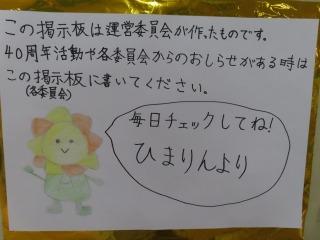 この掲示板は運営委員会が作ったものです。
40周年活動や各委員会からのおしらせがある時は
この掲示板に書いてください。
(各委員会)
毎日チェックしてね!
ひまりんより